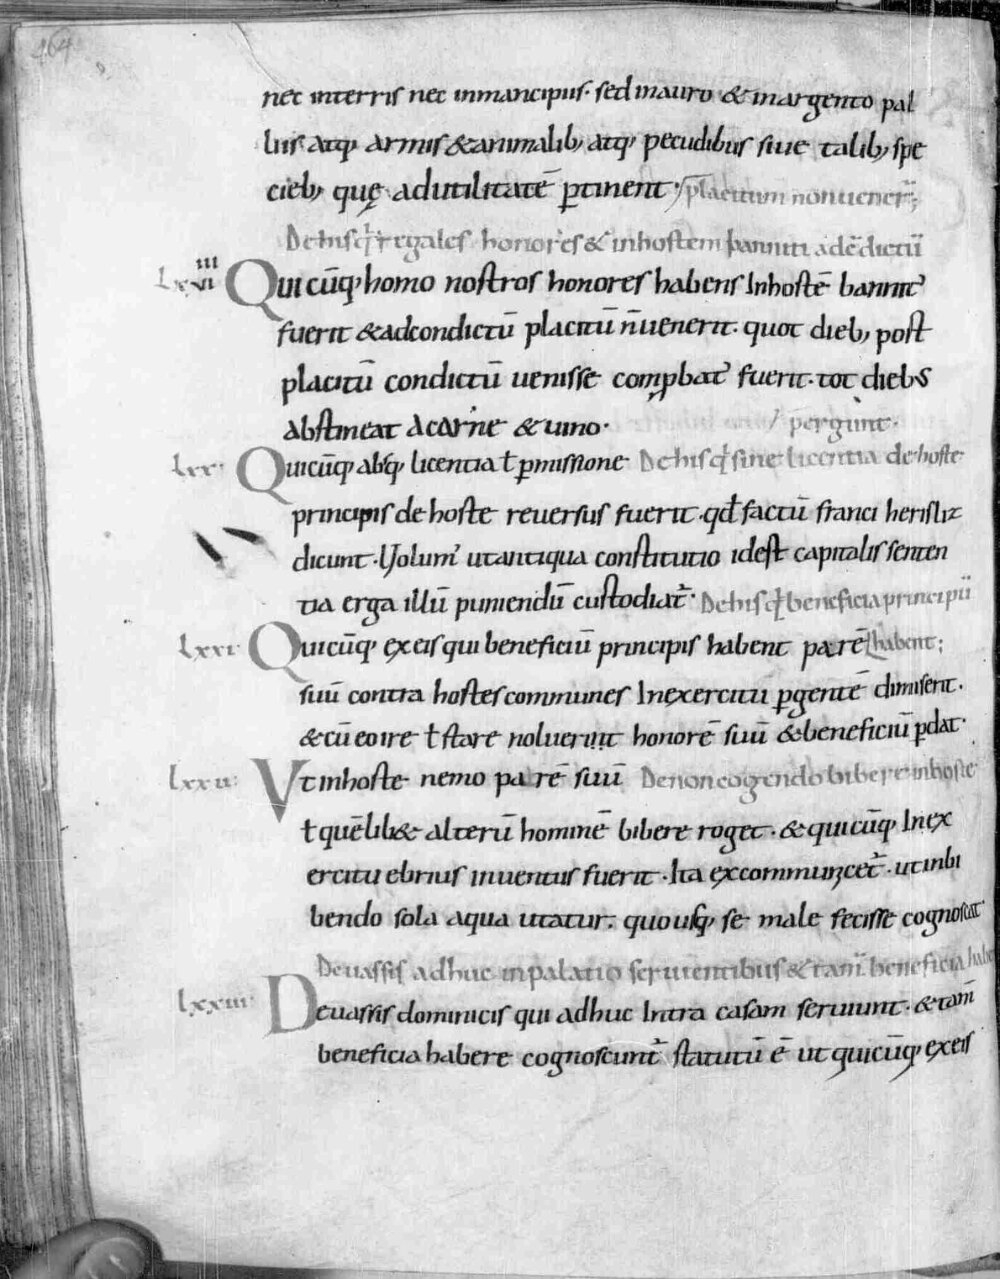 464
nec interris nec inmancipiis· sed inauro & inargento pal
liis atq; armis & animalib; atq; pecudibus siue talib; spe
cieb; quę adutilitatē ꝑtinent· placitum nonuener̄;
De his q̄ regales honores & inhostem banniti adc̄dictū
Lxviiii Quicūq; homo nostros honores habens Inhostē bannit᾽
fuerit & adcondictū placitū n̄uenerit· quot dieb; post
placitū condictū uenisse comꝓbat᾽ fuerit· tot diebs
abstineat acarne & uino· pergunt·
Lxx· Quicūq; absq; licentia ł ꝑmissione De his q̄ sine licentia de hoste
principis de hoste reuersus fuerit· qd̄ factū franci herisliz
dicunt· Uolum᾽ utantiqua constitutio idest capitalis senten
tia erga illū puniendū custodiat᾽· De his q̄ beneficia principū
Lxxi· Quicūq; exeis qui beneficiū principis habent parē habent;
suū contra hostes communes Inexercitu ꝑgentē dimiserit·
& cū eo ire ł stare noluerint honorē suū & beneficiū ꝑdat·
Lxxii· Vt inhoste nemo parē suū De non cogendo bibere inhoste
ł quēlib& alterū hominē bibere roget· & quicūq; Inex
ercitu ebrius inuentus fuerit· Ita excommunicet᾽· ut inbi
bendo sola aqua utatur· quousq; se male fecisse cognoscat
De uassis adhuc inpalatio seruientibus & tam̄ beneficia habe
Lxxiii· De uassis dominicis qui adhuc Intra casam seruiunt· & tam̄
beneficia habere cognoscunt᾽ statutū ē ut quicūq; exeis